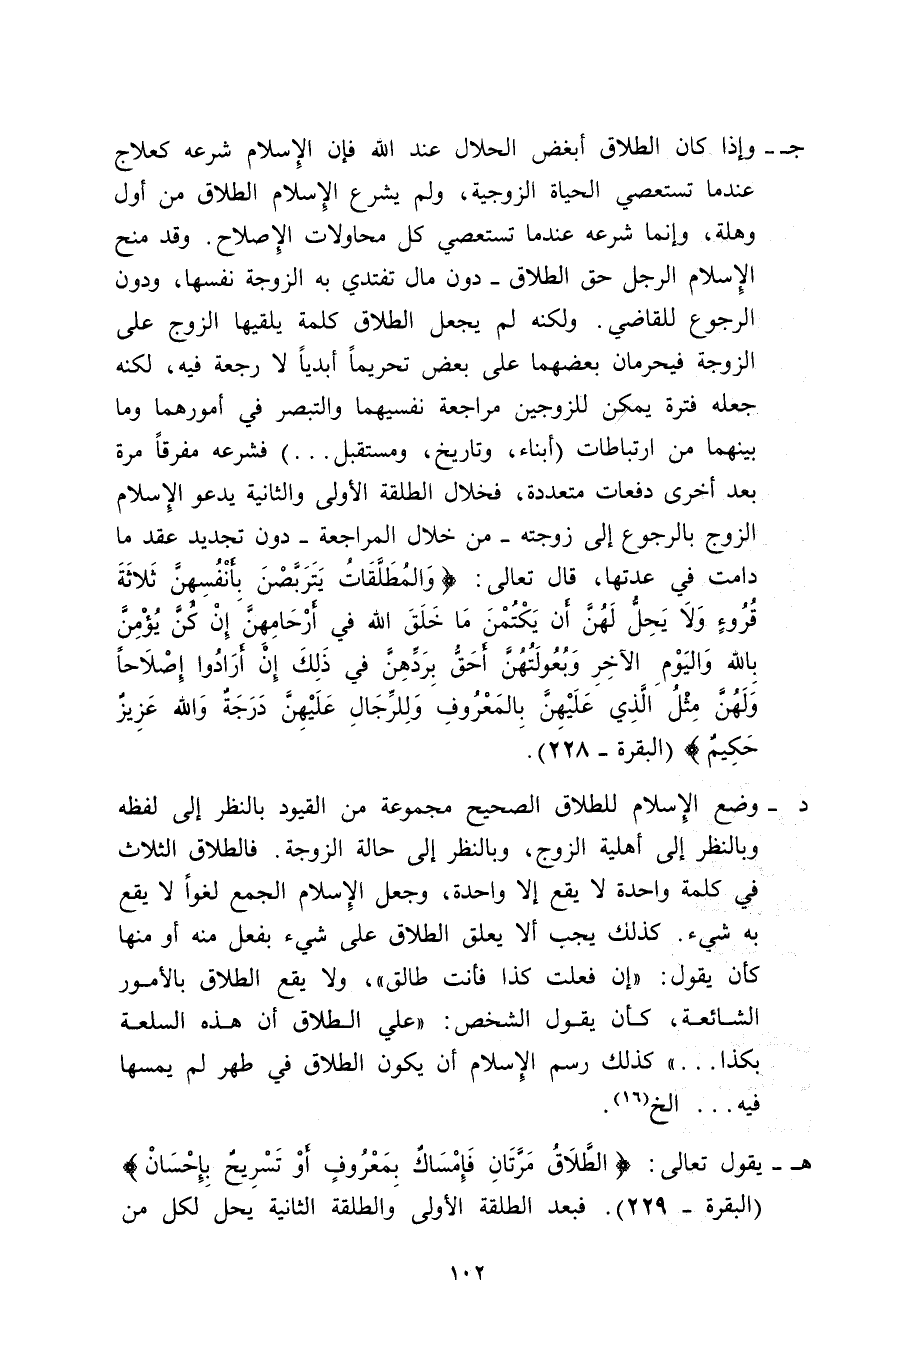 جـ ـ وإذا كان الطلاق أبغض الحلال عند الله فإن الإسلام شرعه كعلاج
عندما تستعصي الحياة الزوجية، ولم يشرع الإسلام الطلاق من أول
وهلة، وإنما شرعه عندما تستعصي كل محاولات الإصلاح. وقد منح
الإسلام الرجل حق الطلاق ـ دون مال تفتدي به الزوجة نفسها، ودون
الرجوع للقاضي. ولكنه لم يجعل الطلاق كلمة يلقيها الزوج على
الزوجة فيحرمان بعضهما على بعض تحريماً أبدياً لا رجعة فيه، لكنه
جعله فترة يمكن للزوجين مراجعة نفسيهما والتبصر في أمورهما وما
بينهما من ارتباطات (أبناء، وتاريخ، ومستقبل...) فشرعه مفرقاً مرة
بعد أخرى دفعات متعددة، فخلال الطلقة الأولى والثانية يدعو الإسلام
الزوج بالرجوع إلى زوجته ـ من خلال المراجعة ـ دون تجديد عقد ما
دامت في عدتها، قال تعالى: ﴿ وَالمُطَلَّقَاتُ يَتَرَبَّصْنَ بِأَنْفُسِهِنَّ ثَلاثَةَ
قُرُوءٍ وَلَا يَحِلُّ لَهُنَّ أَن يَكْتُمْنَ مَا خَلَقَ الله في أَرْحَامِهِنَّ إِنْ كُنَّ يُؤْمِنَّ
بِالله وَاليَوْمِ الآخِرِ وَبُعُولَتُهُنَّ أَحَقُّ بِرَدِّهِنَّ في ذَلِكَ إِنْ أَرَادُوا إِصْلَاحاً
وَلَهُنَّ مِثْلُ الَّذِي عَلَيْهِنَّ بِالمَعْرُوفِ وَلِلرِّجَالِ عَلَيْهِنَّ دَرَجَةٌ وَالله عَزِيزٌ
حَكِيمٌ ﴾ (البقرة ـ ٢٢٨).
د ـ وضع الإسلام للطلاق الصحيح مجموعة من القيود بالنظر إلى لفظه
وبالنظر إلى أهلية الزوج، وبالنظر إلى حالة الزوجة. فالطلاق الثلاث
في كلمة واحدة لا يقع إلا واحدة، وجعل الإسلام الجمع لغواً لا يقع
به شيء. كذلك يجب ألا يعلق الطلاق على شيء بفعل منه أو منها
كأن يقول: «إن فعلت كذا فأنت طالق»، ولا يقع الطلاق بالأمور
الشائعة، كأن يقول الشخص: «علي الطلاق أن هذه السلعة
بكذا...» كذلك رسم الإسلام أن يكون الطلاق في طهر لم يمسها
فيه... الخ(١٦).
هـ ـ يقول تعالى: ﴿ الطَّلَاقُ مَرَّتَانِ فَإِمْسَاكٌ بِمَعْرُوفٍ أَوْ تَسْرِيحٌ بِإِحْسَانْ ﴾
(البقرة ـ ٢٢٩). فبعد الطلقة الأولى والطلقة الثانية يحل لكل من
١٠٢